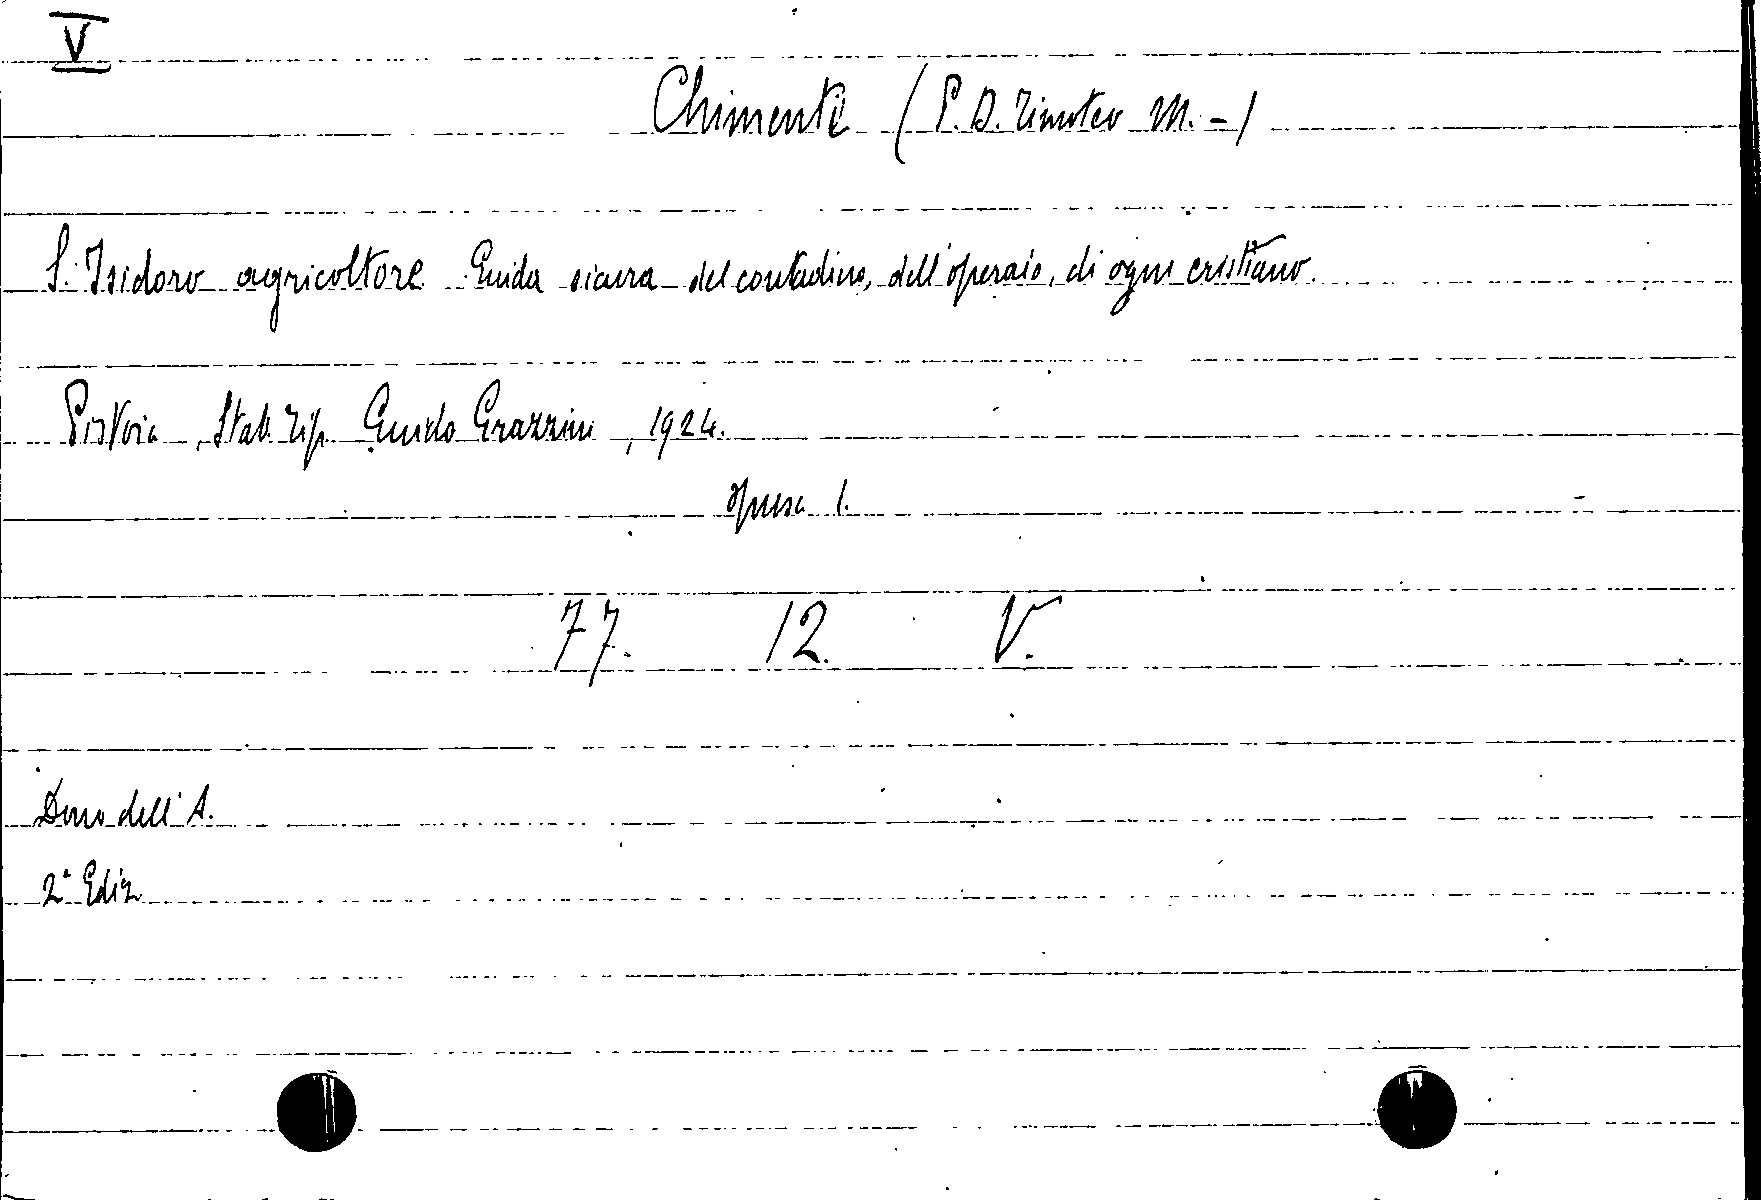 V
Chimenti (P. D. Timoteo M. -)
S. Isidoro agricoltore. Guida sicura del contadino, dell'operaio, di ogni cristiano.
Pistoia, Stab. Tip. Guido Grazzini, 1924.
opusc 1.
77. 12. V.
Dono dell'A.
2ª Ediz